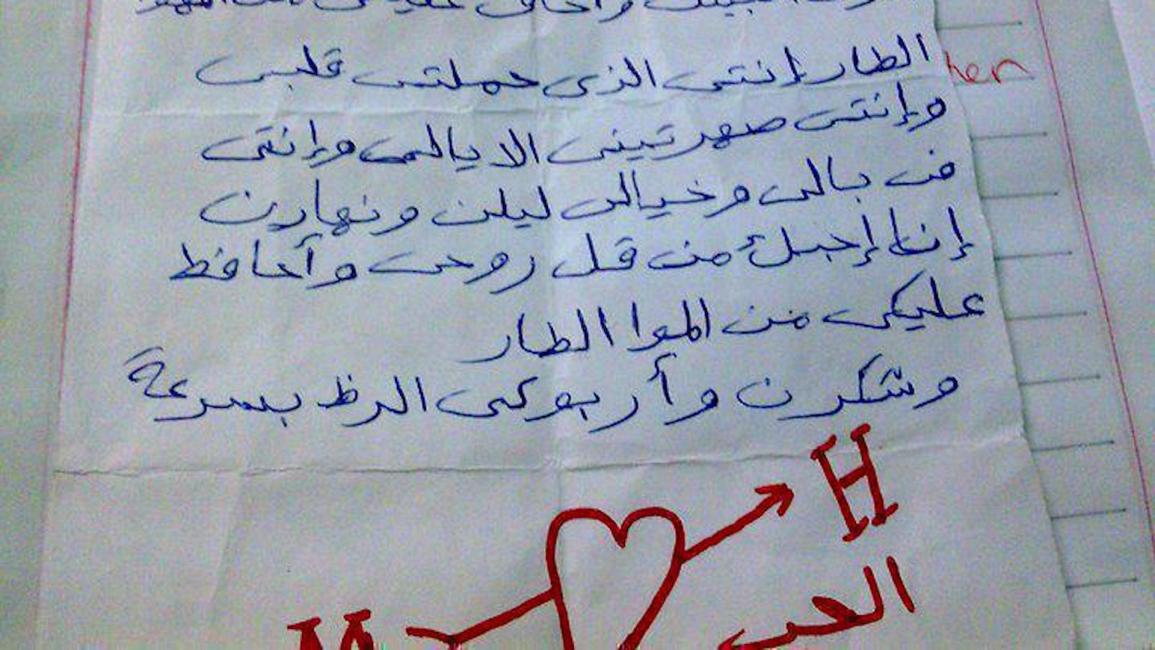 الطار إنتى الذى حملتى قلبى
her
وإنتى صهرتينى الايالى وإنتى
فى بالى وخيالى ليلن ونهارن
إنا إحبك من قل روحى وأحافظ
عليكى من الهوا الطار
وشكرن وأربوكى الرظ بسرعة
H
الحب
M